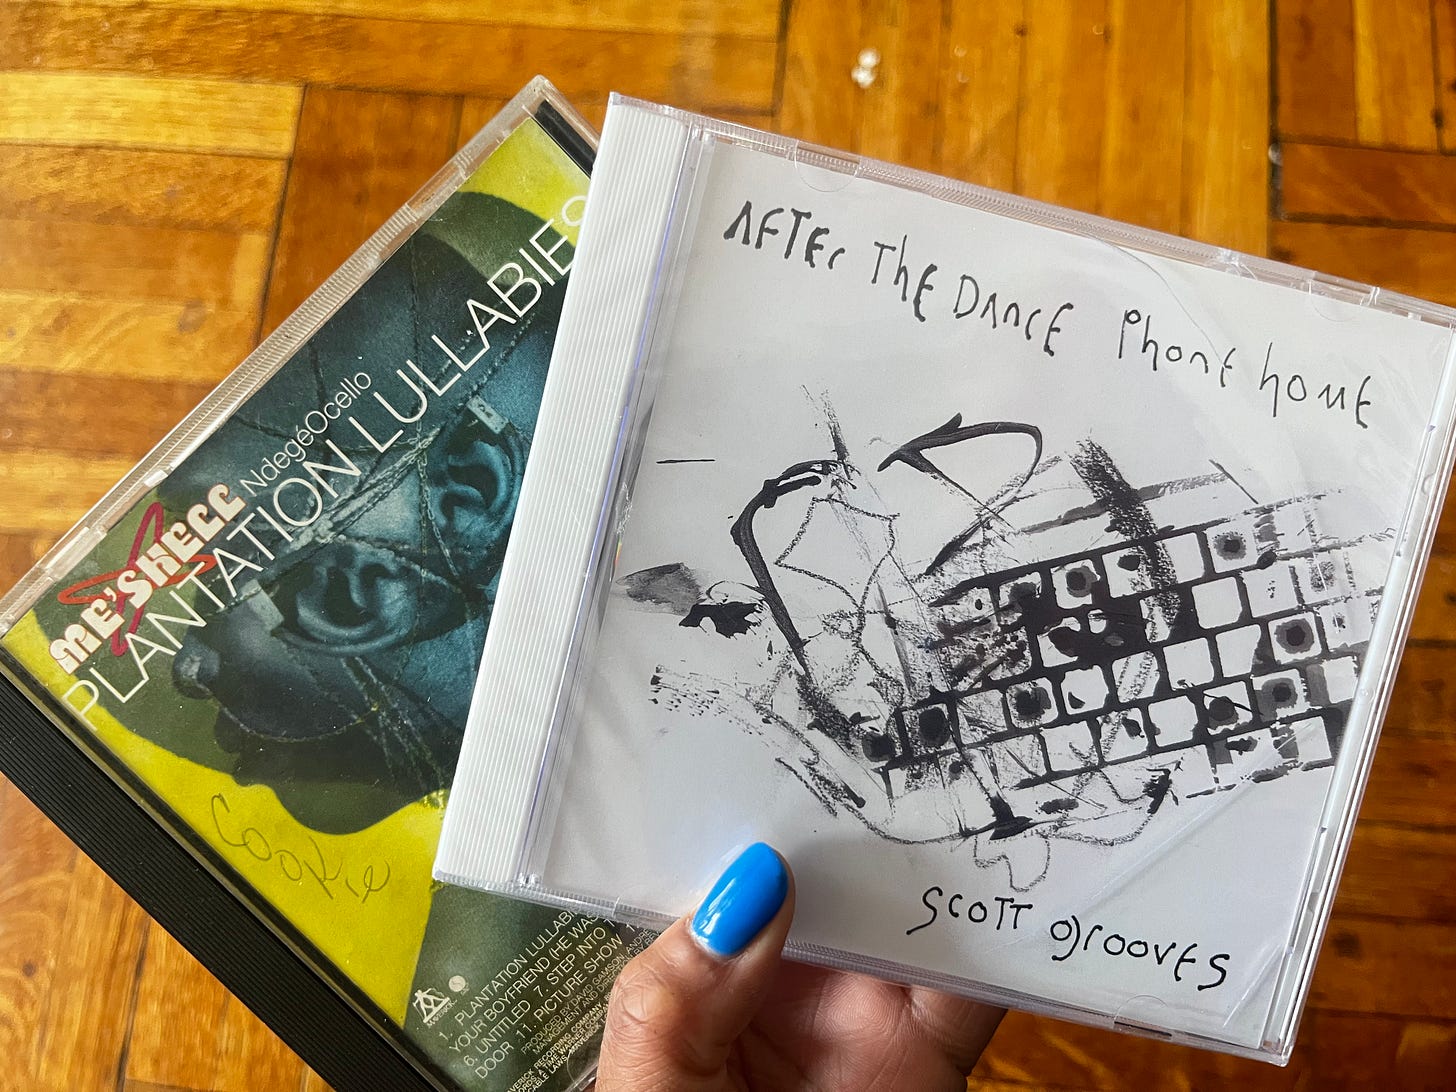 ME'SHELL NdegéOcello
PLANTATION LULLABIES
Cookie
1. PLANTATION LULLABI
YOUR BOYFRIEND (HE WAS
6. UNTITLED 7. STEP INTO
DOOR 11. PICTURE SHOW
PRODUCED BY DAVID GAMSON, ANDRE
AFTEr THE DANCE Phone home
SCOTT grooves